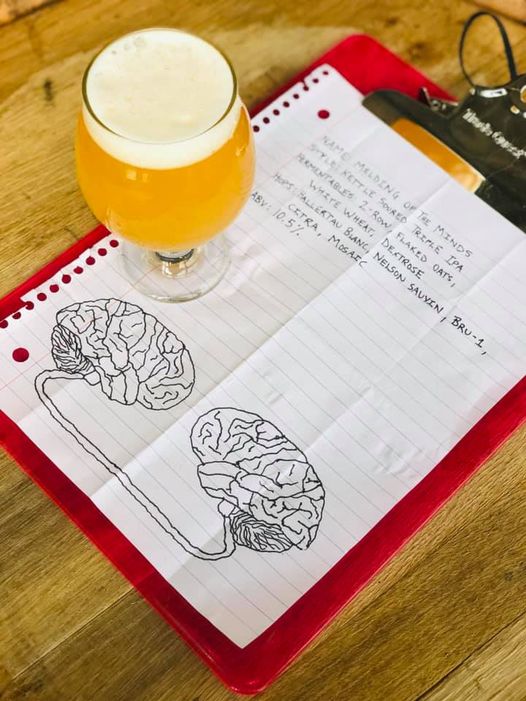 NAME MELDING OF THE MINDS
STYLE: KETTLE SOURED TRIPLE IPA
FERMENTABLES 2-ROW, FLAKED OATS,
WHITE WHEAT, DEXTROSE
HOPS: HALLERTAU BLANC, NELSON SAUVIN, BRU-1,
CITRA, MOSAIC
ABV: 10.5%